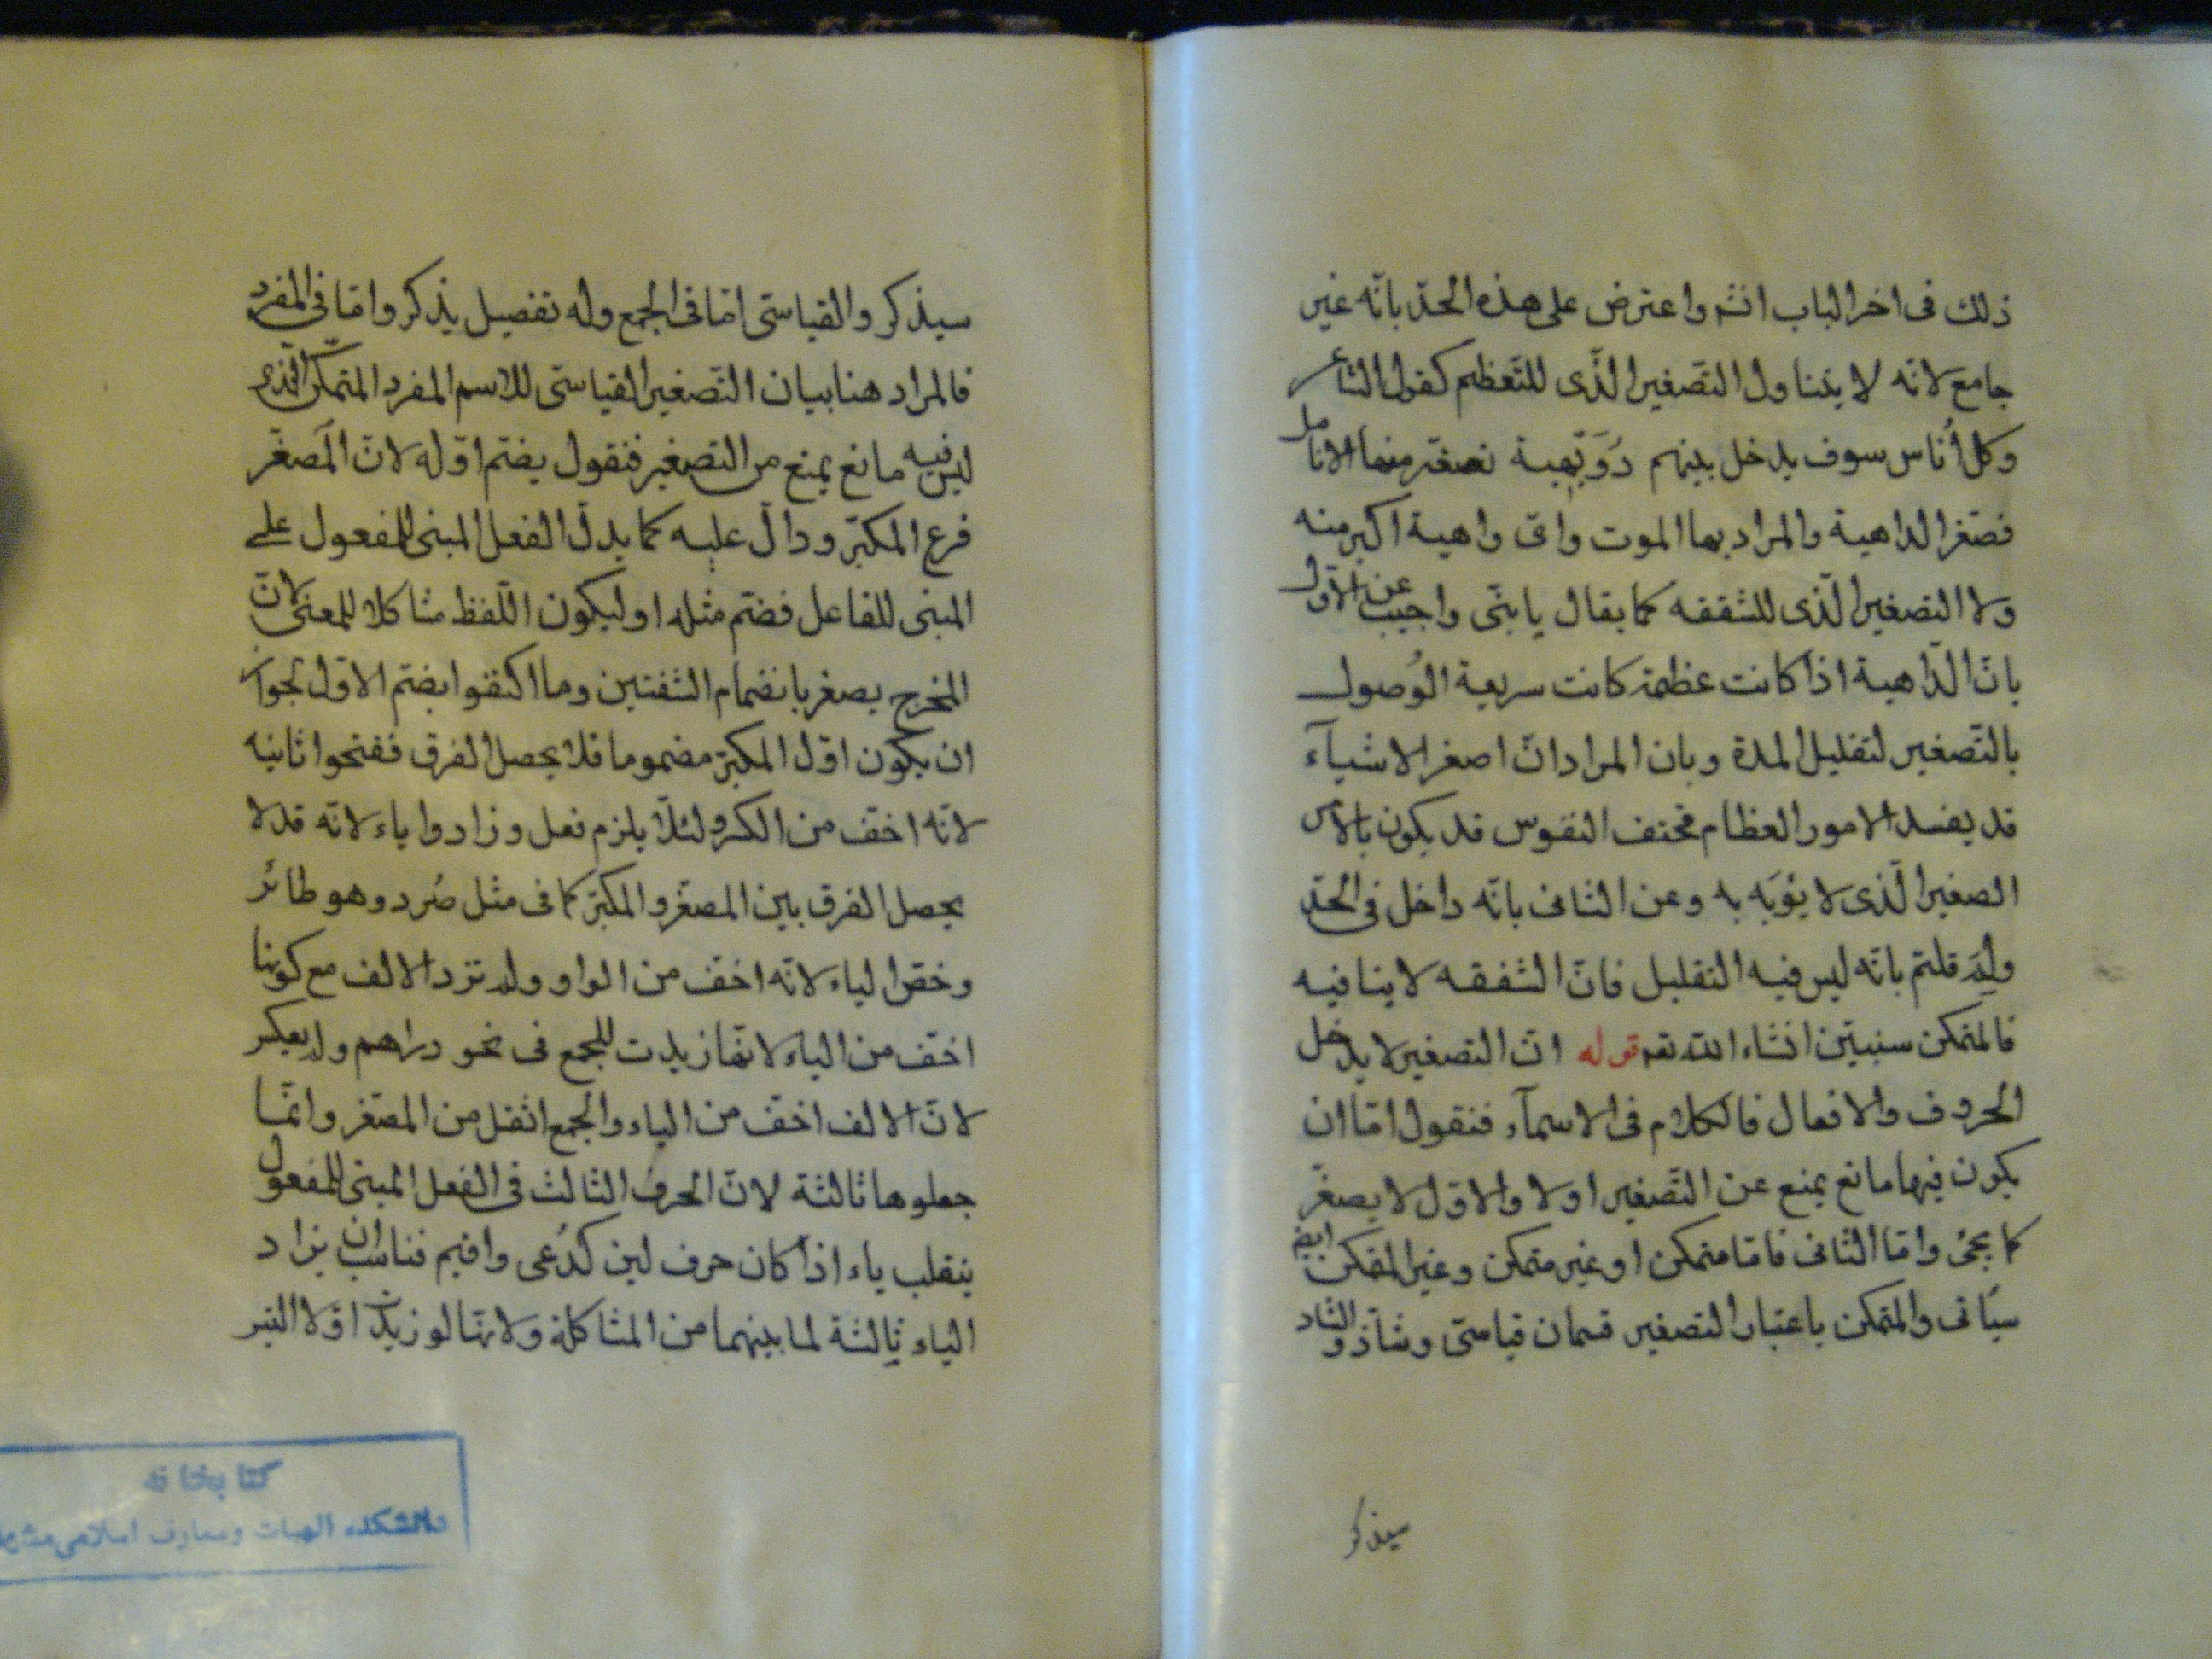 ذلك فى اخر الباب انشم واعترض على هذه الحدّ بانّه غير
جامع لانّه لا يتناول التّصغير الذّى للتّعظيم كقول الشاعر
وكل اُناس سوف يدخل بينهم دُوَيهية تصفرّ منها الانامل
فصغّر الداهية والمراد بها الموت واىّ داهية اكبر منه
ولا التصغير الّذى للشفقه كما يقال يا بنّى واجيب عن الاوّل
بانّ الدّاهية اذا كانت عظيمة كانت سريعة الوُصول
بالتّصغير لتقليل المدة وبان المراد انّ اصغر الاشياۤء
قد يفسد الامور العظام فحتف النفوس قد يكون بالامر
الصغير الّذى لا يؤبَه به وعن الثانى بانّه داخل فى الحدّ
ولم قلتم بانّه ليس فيه التقليل فانّ الشفقه لا ينافيه
فالمتمكن سنبيّن انشاء الله تعم قوله انّ التصغير لا يدخل
الحروف والافعال فالكلام فى الاسماۤء فنقول امّا ان
يكون فيها مانع يمنع عن التّصغير اولا والاوّل لا يصغّر
كما يجئ وامّا الثّانى فامّا متمكن او غير متمكن وغير المتمكن ايضم
سيَاتى والمتمكن باعتبار التصغير قسمان قياسىّ وشاذّ والشاد
سيذكر
سيذكر والقياسىّ امّا فى الجمع وله تفصيل يذكر وامّا فى المفرد
فالمراد هنا بيان التّصغير القياسىّ للاسم المفرد المتمكّن الّذى
ليس فيه مانع يمنع من التصغير فنقول يضّم اوّله لانّ المَصغّر
فرع المكبّر ودالّ عليه كما يدلّ الفعل المبنى للمفعول على
المبنى للفاعل فضّم مثله او ليكون اللّفظ مشاكلا للمعنى لانّ
المخرج يصغر بانضمام الشفتين وما اكتفوا بضّم الاوّل لجواز
ان يكون اوّل المكبّر مضموما فلا يحصل الفرق ففتحوا ثانيه
لانّه اخفّ من الكسر ولئلّا يلزم فعل وزادوا ياء لانّه قد لا
يحصل الفرق بين المصغّر والمكبّر كما فى مثل صُرد وهو طائر
وخصّ الياء لانّه اخفّ من الواو ولم تزد الالف مع كونها
اخفّ من الياء لانّها زيدت للجمع فى نحو دراهم ولم يعكس
لانّ الالف اخفّ من الياء والجمع اثقل من المصّغر وانّما
جعلوها ثالثة لانّ الحرف الثالث فى الفعل المبنى للمفعول
ينقلب ياء اذا كان حرف لين كدُعى واقيم فناسب ان يزاد
الياء ثالثة لما بينهما من المشاكلة ولانّها لو زيدت اوّلا التبس
كتابخانه
دانشكده الهيات ومعارف اسلامي مشهد